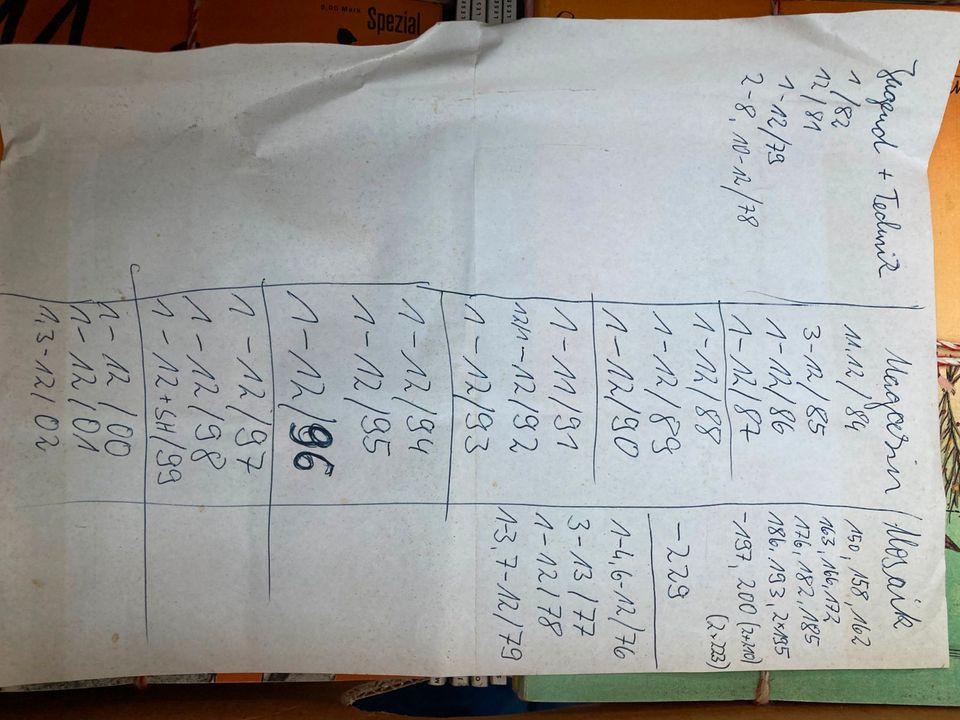 Jugend + Technik
1/82
12/81
1-12/79
2-8, 10-12/78
Magazin
11.12/84
3-12/85
1-12/86
1-12/87
1-12/88
1-12/89
1-12/90
1-11/91
1-12/92
1-12/93
1-12/94
1-12/95
1-12/96
1-12/97
1-12/98
1-12+SH/99
1-12/00
1-12/01
1,3-12/02
Mosaik
150, 158, 162
163, 166, 172
176, 182, 185
186, 193, 2x195
-197, 200 (2x210)
(2x223)
-229
1-4,6-12/76
3-13/77
1-12/78
1-3,7-12/79
0,00 Mark
Spezial